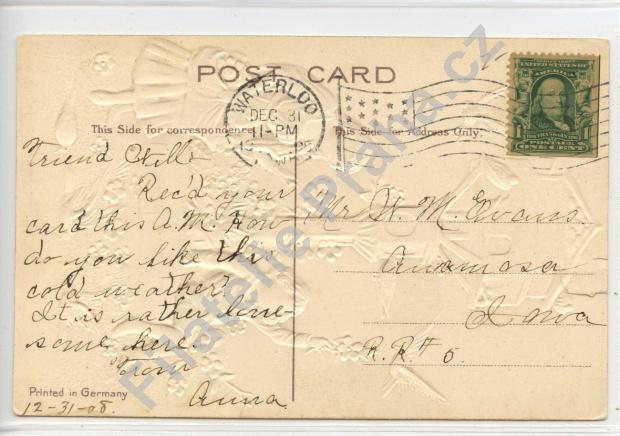 POST CARD
WATERLOO
DEC 31
11-PM
IOWA
This Side for correspondence
This Side for Address Only.
UNITED STATES OF
AMERICA
FRANKLIN
POSTAGE
1 ONE CENT 1
Friend
Rec'd your
card this A.M. How
do you like this
cold weather?
It is rather lone-
some here.
From
Anna
Mr W. M. Evans.
Anamosa
Iowa
R.R# 5.
Printed in Germany
12-31-08.
Filatelie Praha.cz